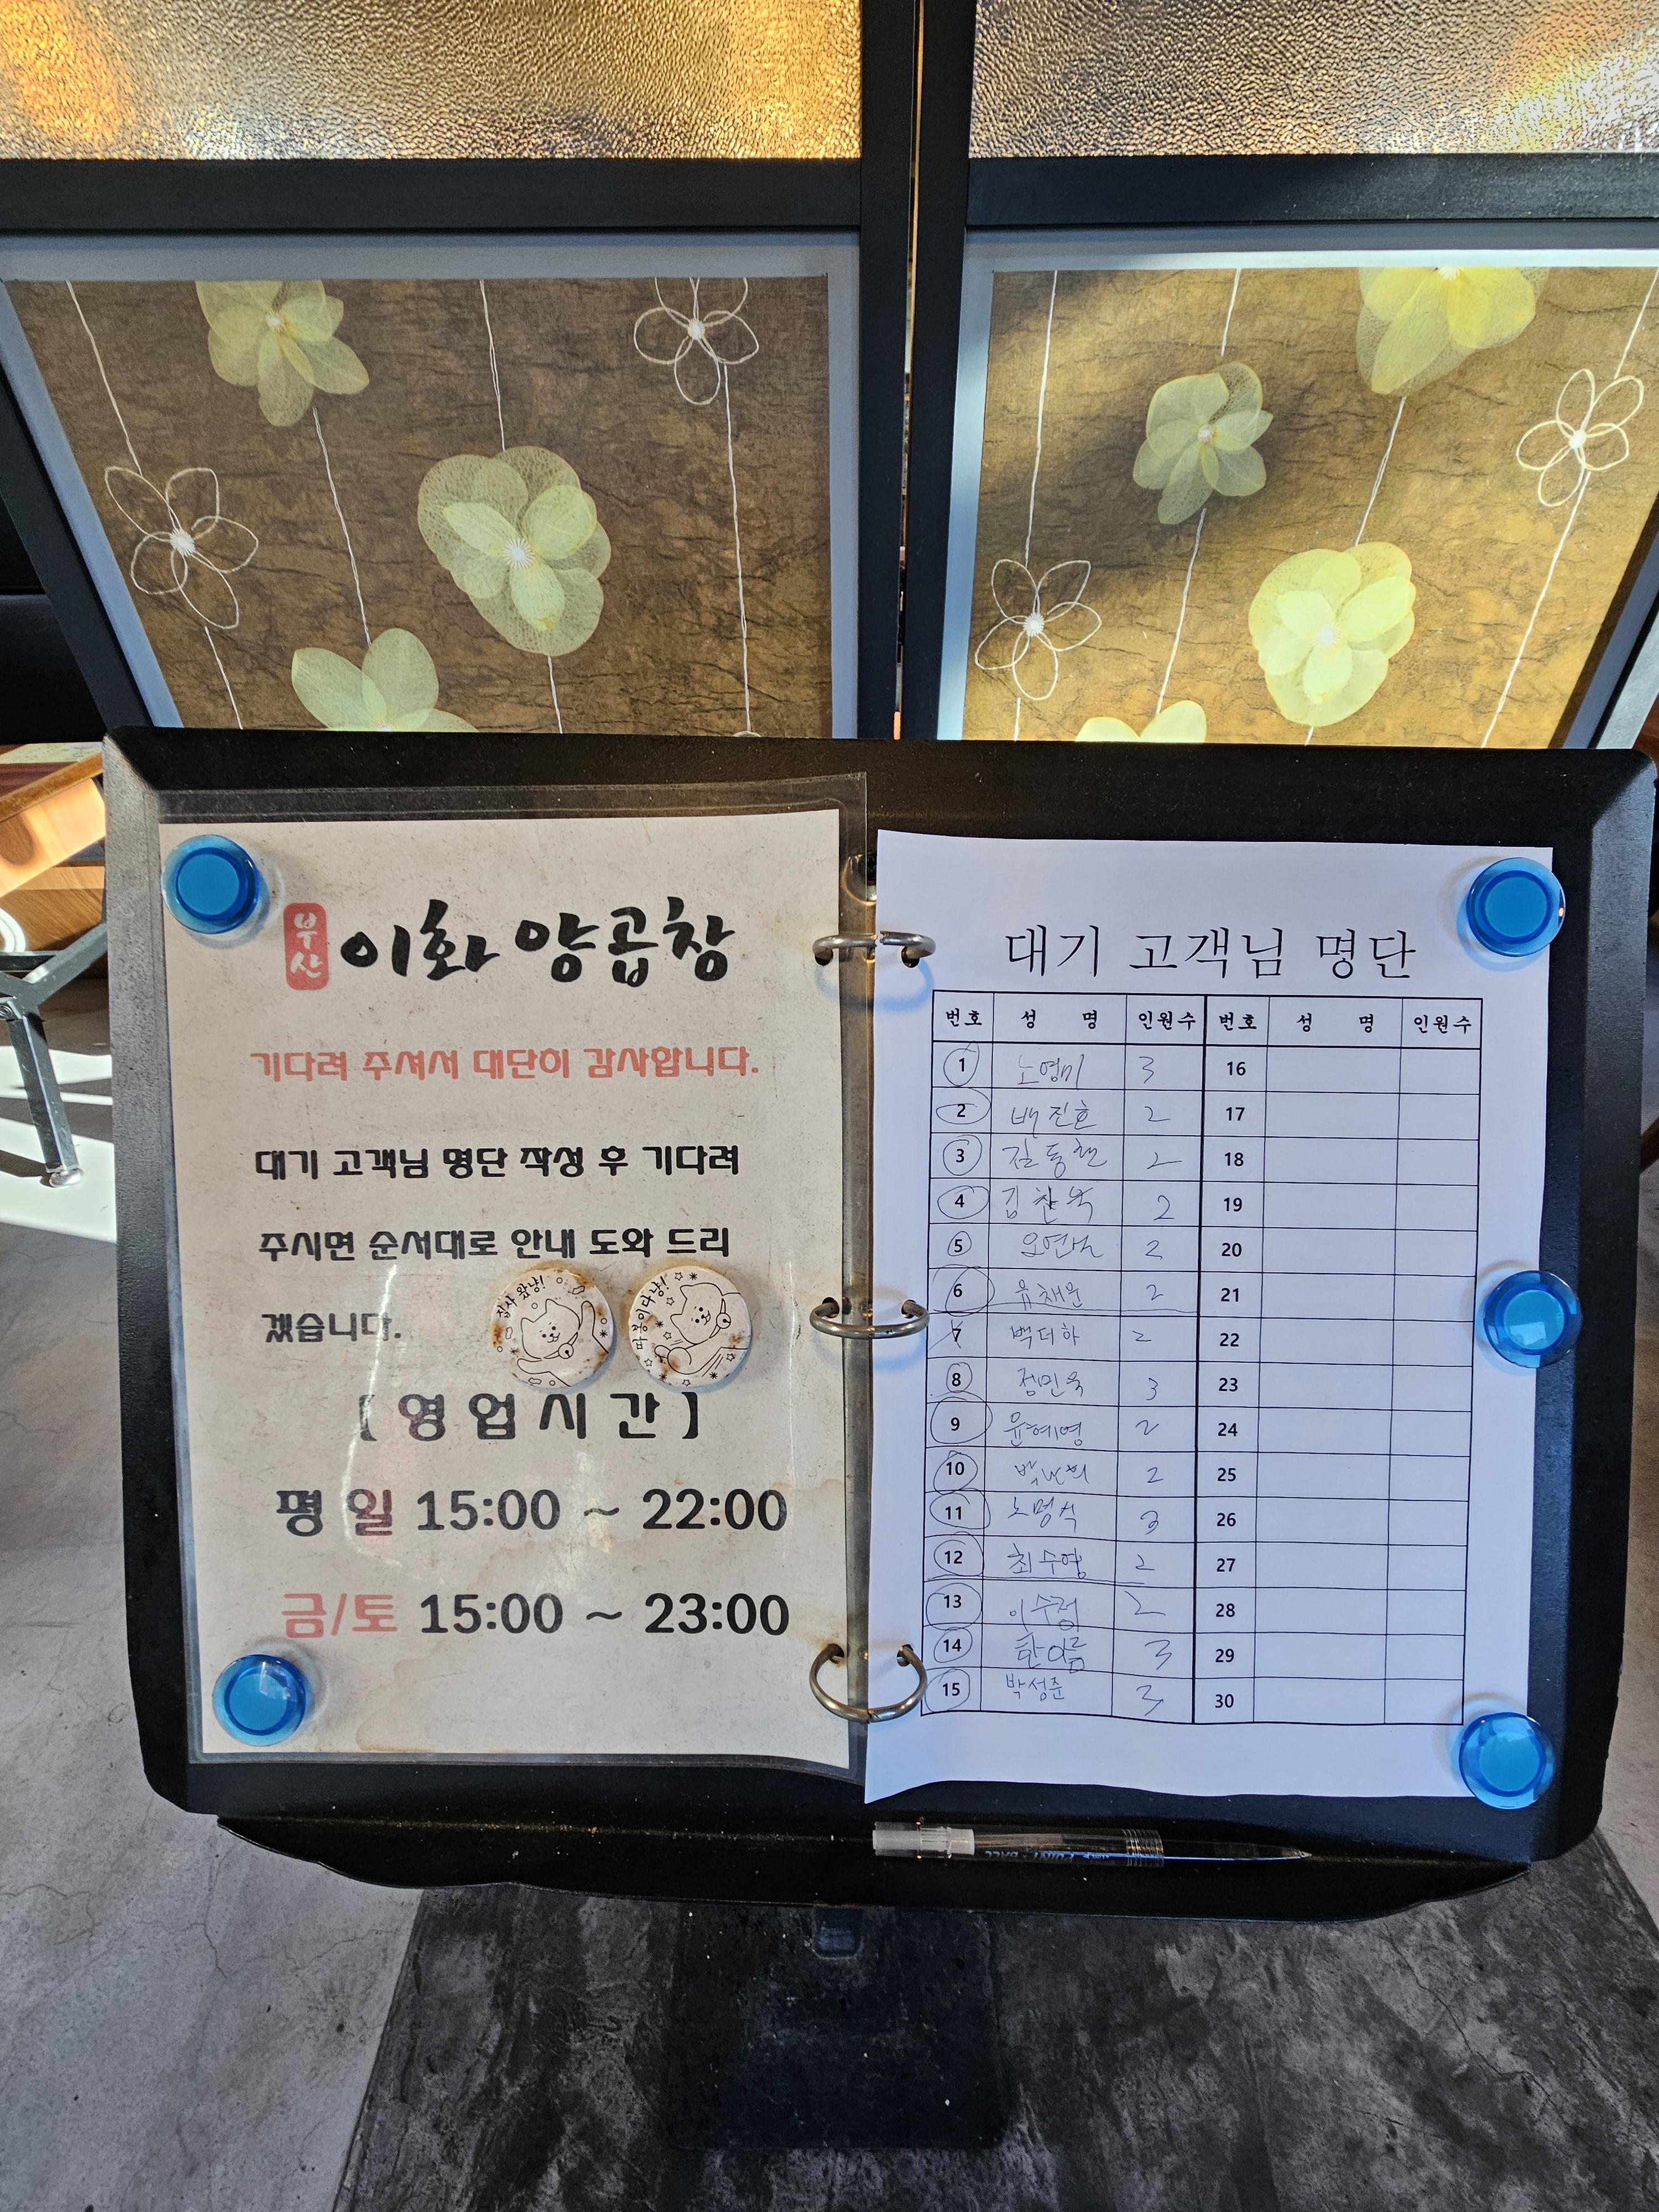 부산 이화 양곱창
기다려 주셔서 대단히 감사합니다.
대기 고객님 명단 작성 후 기다려
주시면 순서대로 안내 도와 드리
겠습니다.
집사 왔냥!
[영업시간]
평일 15:00 ~ 22:00
금/토 15:00 ~ 23:00
대기 고객님 명단
번호 성 명 인원수 번호 성 명 인원수
1 노영미 3 16
2 배진호 2 17
3 김동현 2 18
4 김찬욱 2 19
5 2 20
6 유채운 2 21
7 백더하 2 22
8 정민욱 3 23
9 윤혜영 2 24
10 2 25
11 노명식 3 26
12 최수영 2 27
13 이수정 2 28
14 한아름 3 29
15 박성준 3 30